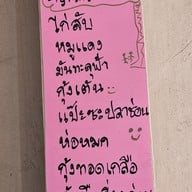 ไก่สับ
หมูแดง
มันทะลุฟ้า
กุ้งเต้น
แป๊ะซะปลาช่อน
ห่อหมก
กุ้งทอดเกลือ